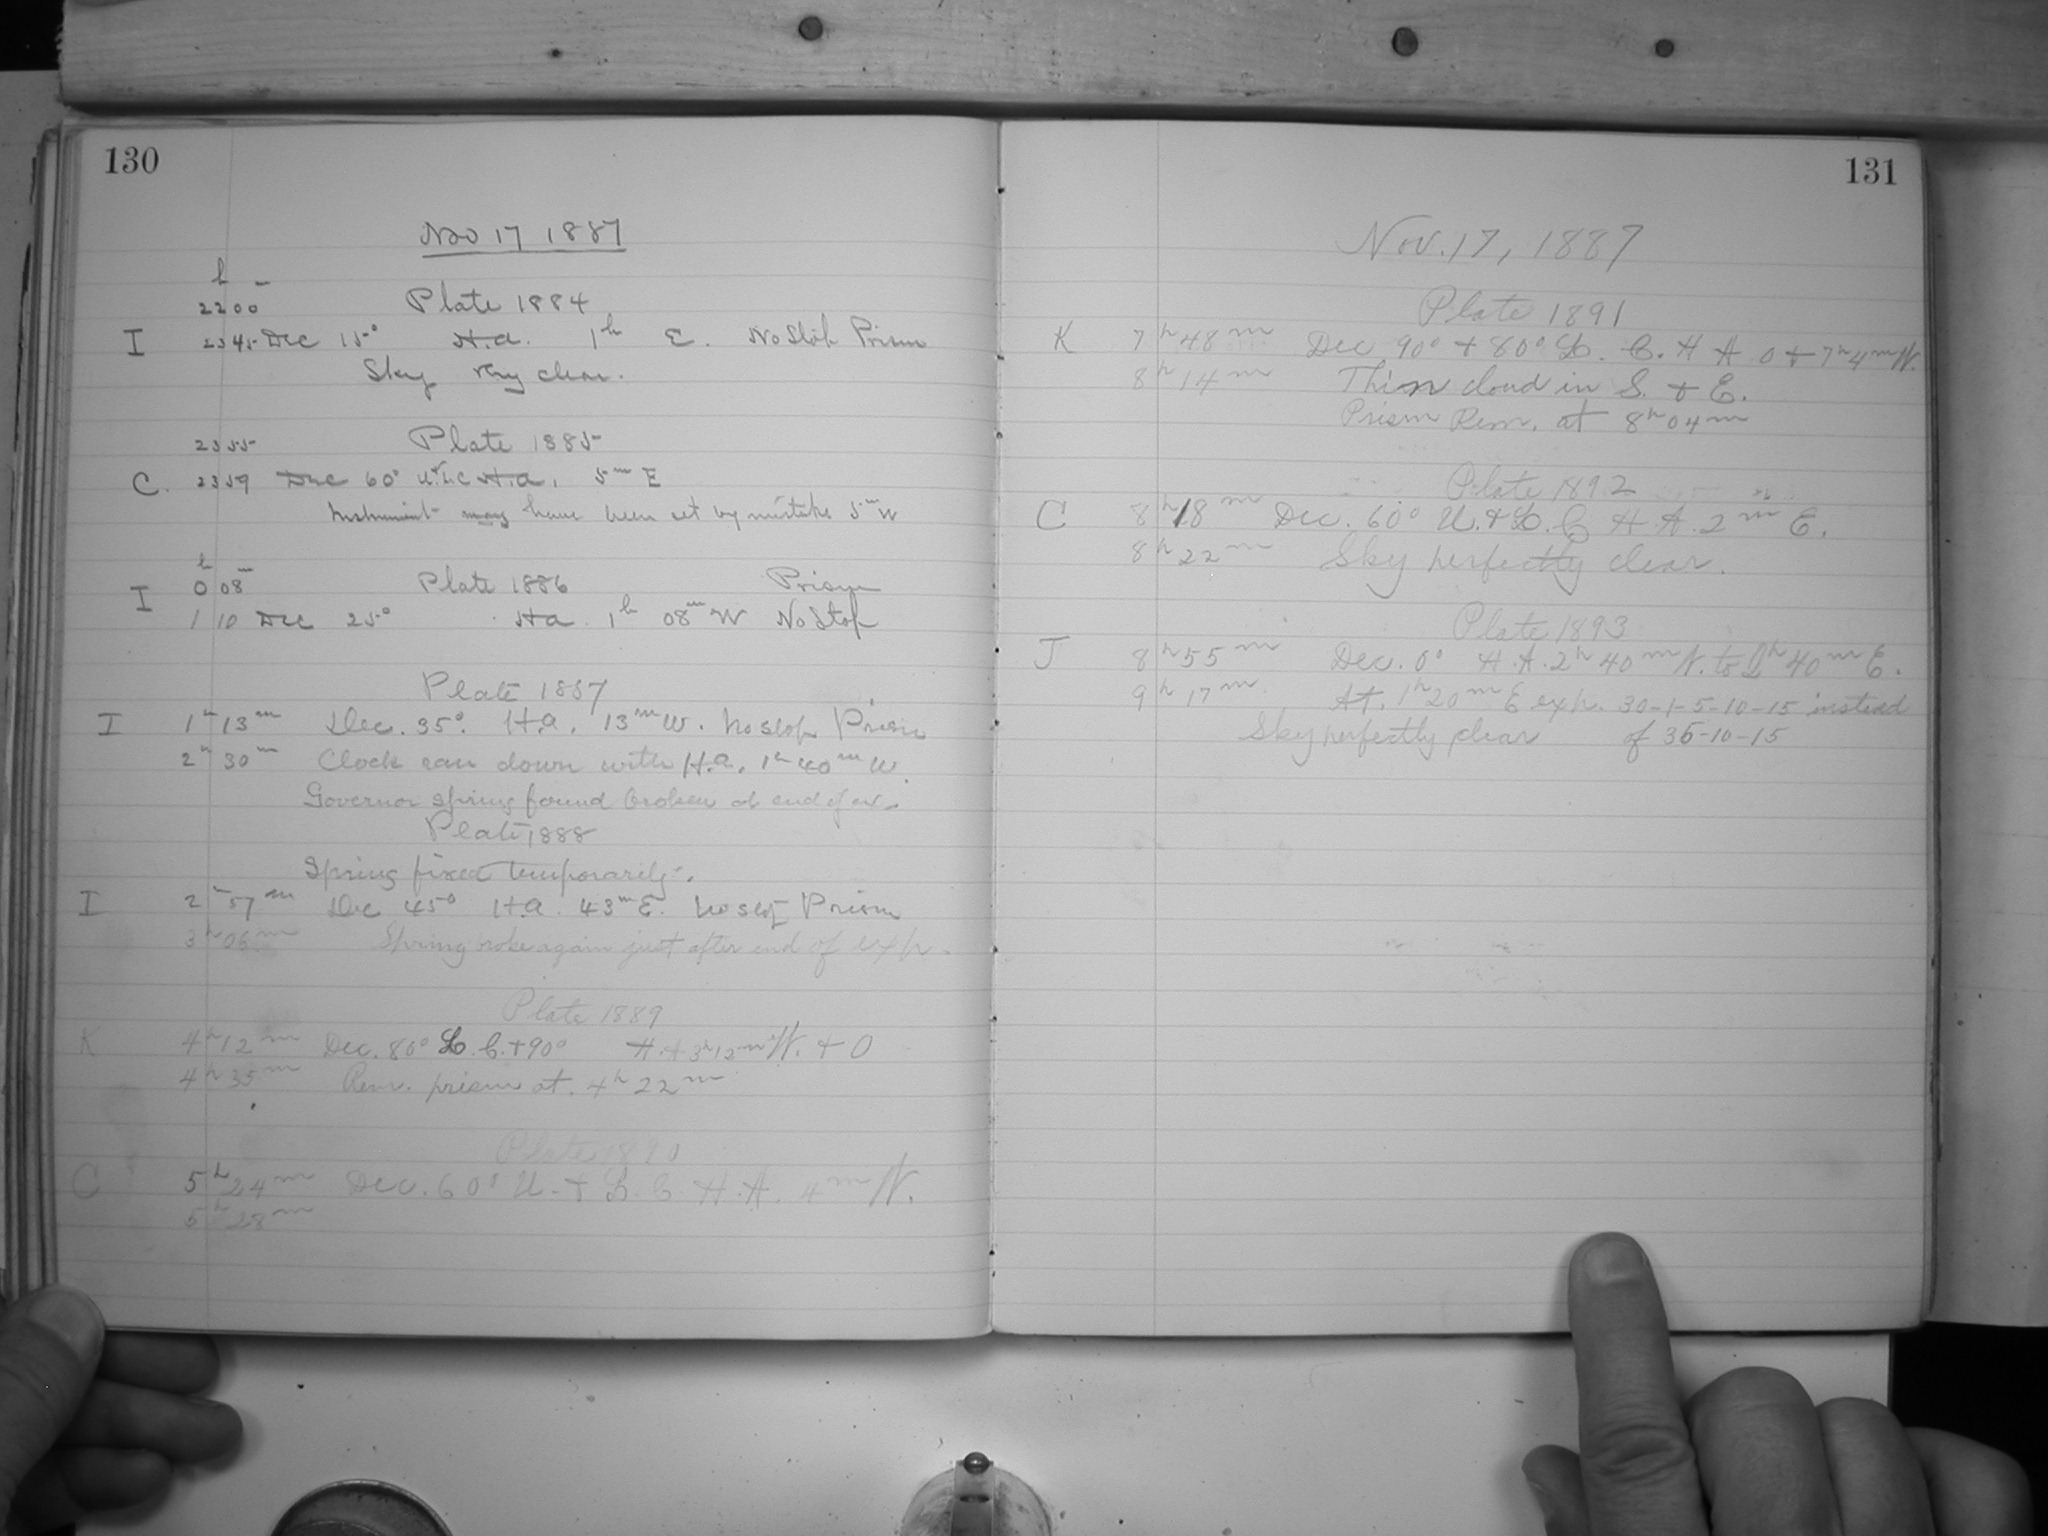 130
Nov 17 1887
h m
22 00 Plate 1884
I 23 45 Dec 15° H.a. 1h E. No Stop Prism
Sky very clear.
23 55 Plate 1885
C. 23 59 Dec 60° U.&L.C H.a. 5m E
Instrument may have been set by mistake 5m W
h m
I 0 08 Plate 1886 Prism
1 10 Dec 25° Ha 1h 08m W No Stop
Plate 1887
I 1h 13m Dec. 35°. H.a. 13m W. No stop Prism
2h 30m Clock ran down with H.a. 1h 40m W.
Governor spring found broken at end of ex.
Plate 1888
Spring fixed temporarily.
I 2h 57m Dec 45° H.a. 43m E. No stop Prism
3h 06m Spring broke again just after end of exp.
Plate 1889
K 4h 12m Dec. 80° L.C. + 90° H.A 3h 12m W. + 0
4h 35m Rem. prism at. 4h 22m
Plate 1890
C 5h 24m Dec. 60° U. + L.C. H.A. 4m W.
5h 28m
131
Nov. 17, 1887
Plate 1891
K 7h 48m Dec 90° + 80° L.C. H A. 0 + 7h 4m W.
8h 14m Thin cloud in S. + E.
Prism Rem. at 8h 04m
Plate 1892
C 8h 18m Dec. 60° U. + L.C H.A. 2m E.
8h 22m Sky perfectly clear.
Plate 1893
J 8h 55m Dec. 0° H.A. 2h 40m W. to 2h 40m E.
9h 17m At. 1h 20m E exp. 30-1-5-10-15 instead
Sky perfectly clear of 35-10-15